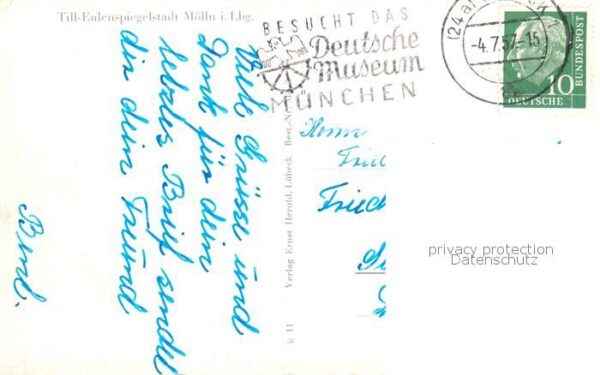 Till-Eulenspiegelstadt Mölln i. Lbg.
Viele Grüsse und
Dank für dein
letztes Brief sendet
dir dein Freund
Bernd.
k 11 Verlag Ernst Herold, Lübeck Best.-N
BESUCHT DAS
Deutsche
Museum
MÜNCHEN
(24a) CK
-4.7.57.-15
10
DEUTSCHE
BUNDESPOST
Herrn
Fried
privacy protection
Datenschutz